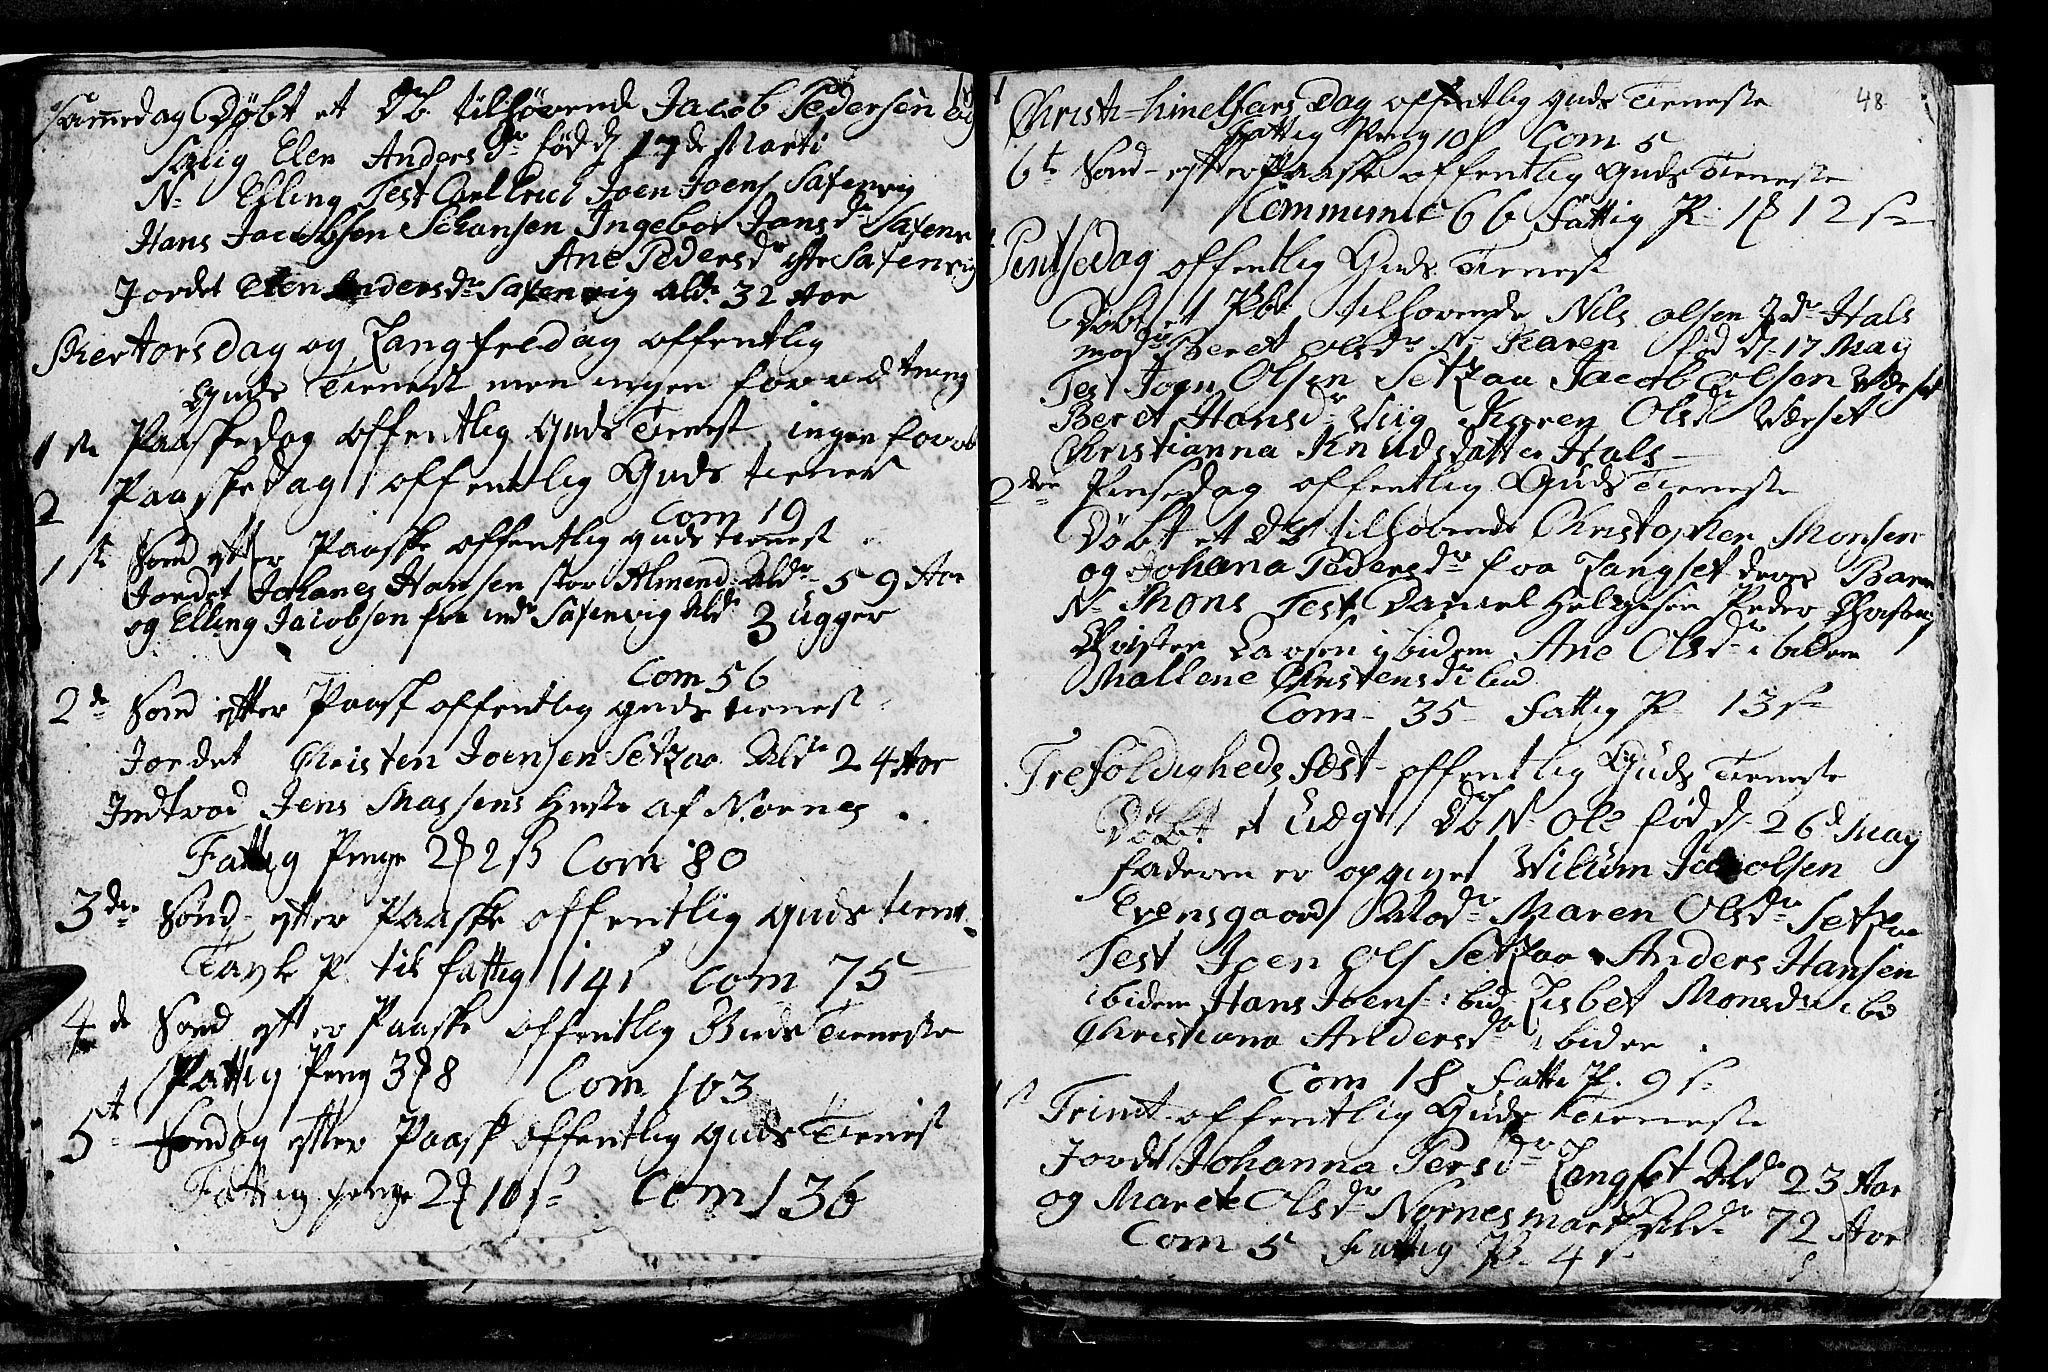 Samedag Døbt et Db. tilhørende Jacob Pedersen og
Salig Elen Andersdr fød d 17de Marti
N. Elling Test Carl Erich Joen Joens Saxenvig
Hans Jacobsen Schansen Ingebor Jonsdr Saxenv
Ane Pedersdr ytre Saxenvig
Jordet Elen Andersdr Saxenvig Aldr 32 Aar
Skiertorsdag og Langfredag offentlig
Guds Tienest men ingen forredtning
1ste Paaskedag offentlig Guds Tienest, ingen forret
2 Paaskedag offentlig Guds tienest
Com 19
1ste Sønd. etter Paaske offentlig guds tienest
Jordet Johanes Hansen stor Almend. Aldr 59 Aar
og Elling Jacobsen fra indr Saxenvig Ald 3 ugger
Com 56
2de Sønd etter Paask offentlig guds tienest
Jordet Christen Joensen Setzaa Aldr 24 Aar
Indtrod Jens Massens Hustr af Nornes.
Fattig Penge 2 2 ß Com 80
3die Sønd etter Paaske offentlig guds tienest
Tavle P. til fattig 14 ß Com 75
4de Sønd etter Paaske offentlig Guds Tieneste
Fattig Peng 3 8 Com 103
5t Søndag etter Paask offentlig guds Tienest
Fattig penge 2 10 ß Com 136
48
Christi-himelfars Dag offentlig guds Tieneste
Fattig Peng 10 ß Com 5
6te Sønd- etter Paaske offentlig Guds Tieneste
Communic 66 Fattig P 1 12 ß
Pintsedag offentlig Guds Tienest
Døbt et Pbr tilhørende Nils Olsen Indr Hals
modr Beret Olsdr N. Karen fød d. 17 May
Test Joen Olsen Setzaa Jacob Olsen Værset
Beret Hansdr Viig Karen Olsdr Værset
Christianna Knudsdatter Hals
2den Pinsedag offentlig Guds Tieneste
Døbt et Db tilhørende Christopher Monsen
og Johana Pedersdr fra Langset deres Barn
N. Mons Test Daniel Helgesen Peder Christens
Christen Larsen ibidem Ane Olsdr ibidem
Mallene Christensdr ibid
Com 35 Fattig P 13 ß
Trefoldigheds fæst offentlig Guds Tieneste
Døbt et Uægt Db N. Ole fød d. 26d May
faderen er opgivet Wilium Jacobsen
Evensgaard Modr Maren Olsdr Setzaa
Test Joen Ols Setzaa Anders Hansen
ibidem Hans Joens ibid Lisbet Monsdr ibd
Christiana Andersdr ibidem.
Com 18 Fatti P. 9 ß
1st Trinit offentlig Guds Tieneste
Jordt Johanna Persdr Langset Ald 23 Aar
og Marete Olsdr Nornesmark Aldr 72 Aar
Com 5 Fattig P. 4 ß